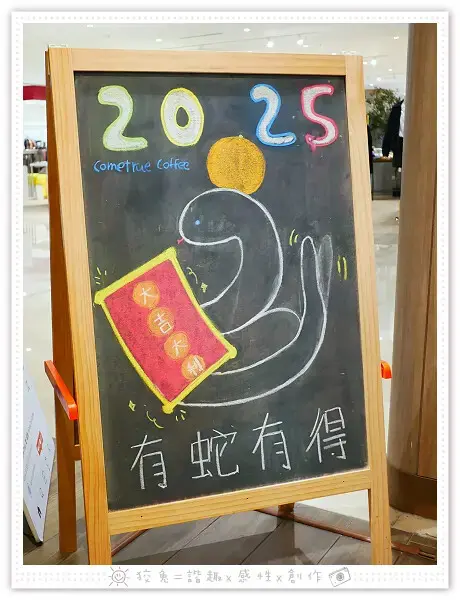 2025
cometrue coffee
大吉大利
有蛇有得
狡兔=諧趣x感性x創作